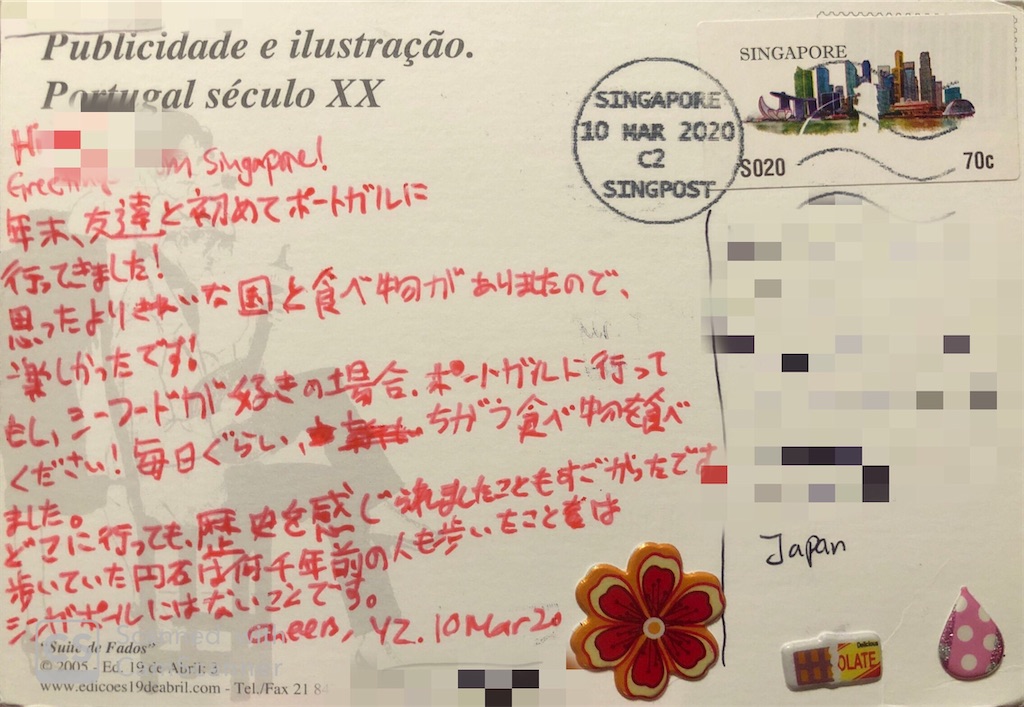 Publicidade e ilustração.
Portugal século XX
SINGAPORE
SINGAPORE
10 MAR 2020
C2
SINGPOST
S020
70c
Singapore!
年末、友達と初めてポートガルに
行ってきました!
思ったよりきれいな国と食べ物がありましたので、
楽しかったです!
もし、シーフードが好きの場合、ポートガルに行って
ください! 毎日ぐらい、ちがう食べ物を食べ
ました。
どこに行っても、歴史を感じられましたこともすごかったです
歩いていた円石は何千年前の人も歩いたことは
シンガポールにはないことです。
Cheers, YZ. 10 Mar 20
Japan
Delicious
OLATE
"Suite de Fados"
© 2005 - Ed. 19 de Abril:
www.edicoes19deabril.com - Tel./Fax 21 84